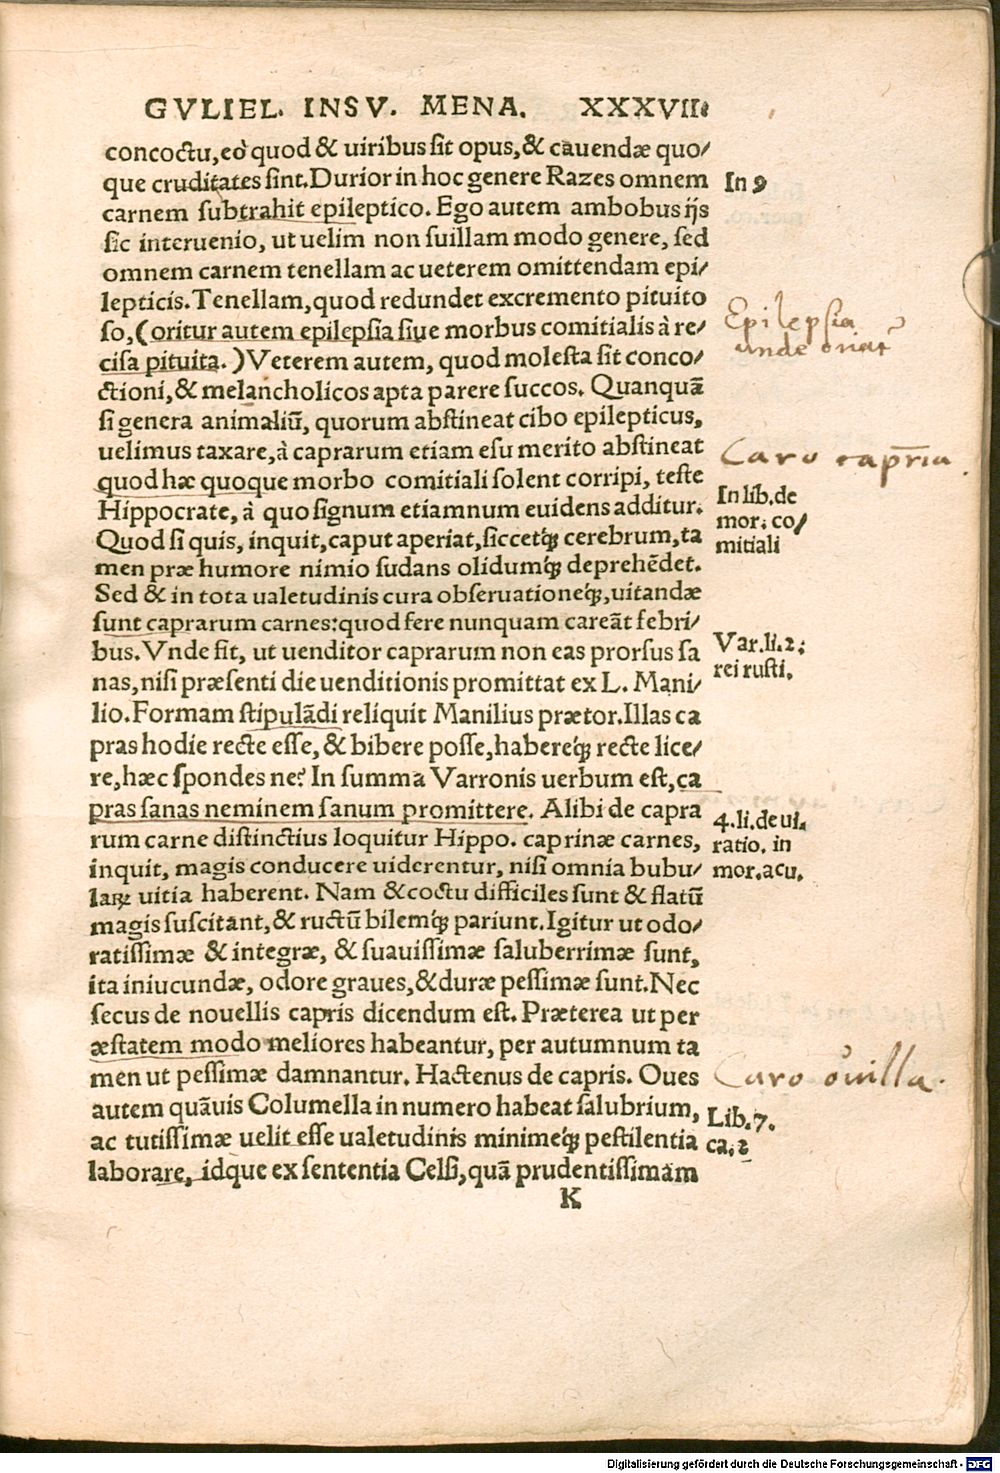 GVLIEL. INSV. MENA. XXXVII.
concoctu, eò quod & uiribus sit opus, & cauendæ quo/
que cruditates sint. Durior in hoc genere Razes omnem
In 9
carnem subtrahit epileptico. Ego autem ambobus ijs
sic interuenio, ut uelim non suillam modo genere, sed
omnem carnem tenellam ac ueterem omittendam epi/
lepticis. Tenellam, quod redundet excremento pituito
so, (oritur autem epilepsia siue morbus comitialis à re/
Epilepsia
unde oriat
cisa pituita.) Veterem autem, quod molesta sit conco/
ctioni, & melancholicos apta parere succos. Quanquā
si genera animaliū, quorum abstineat cibo epilepticus,
uelimus taxare, à caprarum etiam esu merito abstineat
Caro caprīa.
quod hæ quoque morbo comitiali solent corripi, teste
In lib. de
mor. co/
mitiali
Hippocrate, à quo signum etiamnum euidens additur.
Quod si quis, inquit, caput aperiat, siccetq́; cerebrum, ta
men præ humore nimio sudans olidumq́; deprehēdet.
Sed & in tota ualetudinis cura obseruationeq́;, uitandæ
sunt caprarum carnes: quod fere nunquam careāt febri/
bus. Vnde fit, ut uenditor caprarum non eas prorsus sa
Var. li. 2:
rei rusti.
nas, nisi præsenti die uenditionis promittat ex L. Mani/
lio. Formam stipulādi reliquit Manilius prætor. Illas ca
pras hodie recte esse, & bibere posse, habereq́; recte lice/
re, hæc spondes ne? In summa Varronis uerbum est, ca
pras sanas neminem sanum promittere. Alibi de capra
4. li. de ui.
ratio. in
mor. acu.
rum carne distinctius loquitur Hippo. caprinæ carnes,
inquit, magis conducere uiderentur, nisi omnia bubu/
laꝝ uitia haberent. Nam & coctu difficiles sunt & flatū
magis suscitant, & ructū bilemq́; pariunt. Igitur ut odo/
ratissimæ & integræ, & suauissimæ saluberrimæ sunt,
ita iniucundæ, odore graues, & duræ pessimæ sunt. Nec
secus de nouellis capris dicendum est. Præterea ut per
æstatem modo meliores habeantur, per autumnum ta
men ut pessimæ damnantur. Hactenus de capris. Oues
Caro ouilla.
autem quāuis Columella in numero habeat salubrium,
Lib. 7.
ca. 2
ac tutissimæ uelit esse ualetudinis minimeq́; pestilentia
laborare, idque ex sententia Celsi, quā prudentissimam
K
Digitalisierung gefördert durch die Deutsche Forschungsgemeinschaft - DFG